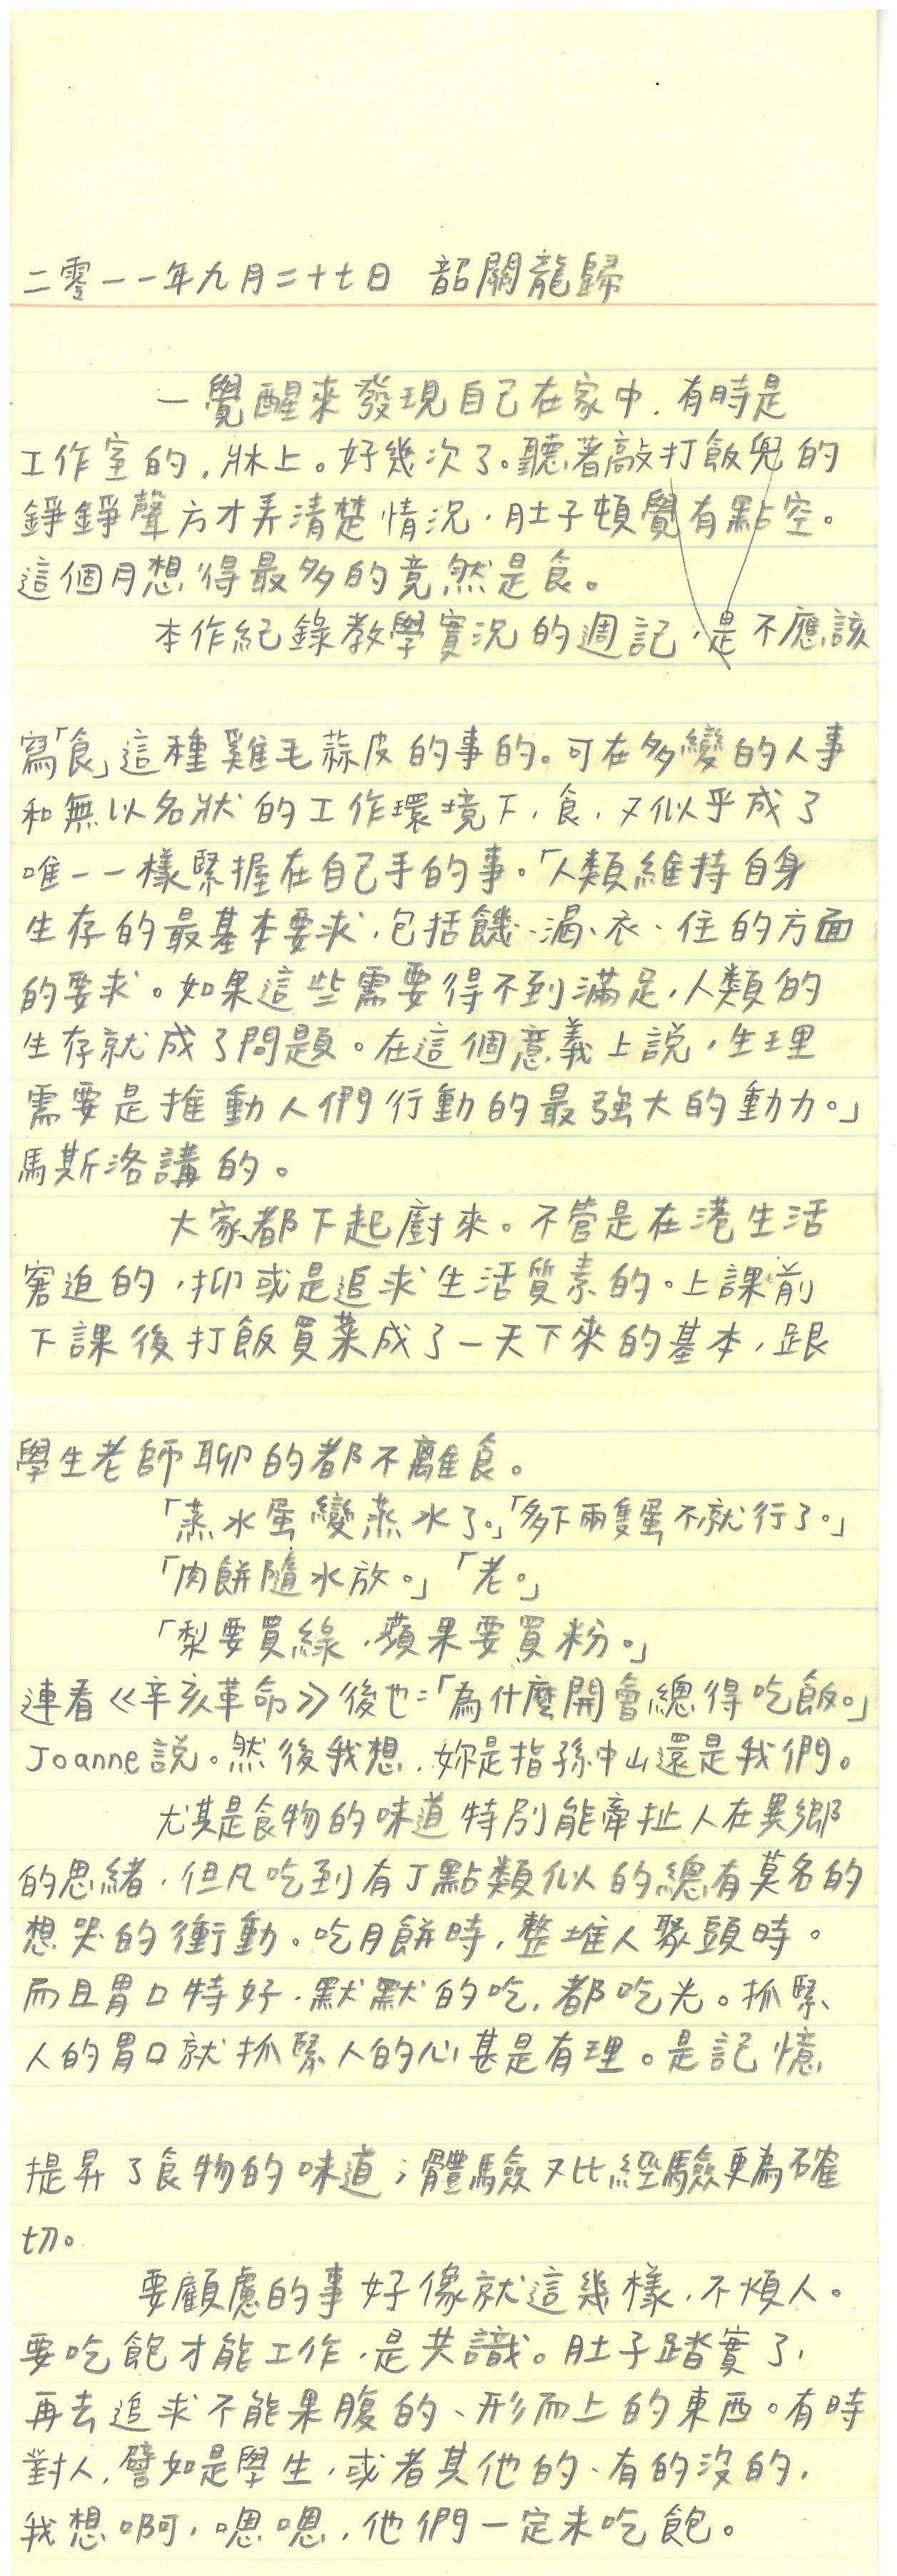 二零一一年九月二十七日 韶關龍歸
一覺醒來發現自己在家中，有時是
工作室的，牀上。好幾次了。聽著敲打飯兜的
錚錚聲方才弄清楚情況，肚子頓覺有點空。
這個月想得最多的竟然是食。
本作紀錄教學實況的週記，是不應該
寫「食」這種雞毛蒜皮的事的。可在多變的人事
和無以名狀的工作環境下，食，又似乎成了
唯一一樣緊握在自己手的事。「人類維持自身
生存的最基本要求，包括饑、渴、衣、住的方面
的要求。如果這些需要得不到滿足，人類的
生存就成了問題。在這個意義上説，生理
需要是推動人們行動的最強大的動力。」
馬斯洛講的。
大家都下起廚來。不管是在港生活
窘迫的，抑或是追求生活質素的。上課前
下課後打飯買菜成了一天下來的基本，跟
學生老師聊的都不離食。
「蒸水蛋變蒸水了。」「多下兩隻蛋不就行了。」
「肉餅隨水放。」「老。」
「梨要買綠，蘋果要買粉。」
連看《辛亥革命》後也：「為什麼開會總得吃飯。」
Joanne説。然後我想，妳是指孫中山還是我們。
尤其是食物的味道特別能牽扯人在異鄉
的思緒，但凡吃到有丁點類似的總有莫名的
想哭的衝動。吃月餅時，整堆人聚頭時。
而且胃口特好，默默的吃，都吃光。抓緊
人的胃口就抓緊人的心甚是有理。是記憶
提昇了食物的味道；體驗又比經驗更為確
切。
要顧慮的事好像就這幾樣，不煩人。
要吃飽才能工作，是共識。肚子踏實了，
再去追求不能果腹的、形而上的東西。有時
對人，譬如是學生，或者其他的、有的沒的，
我想啊，嗯嗯，他們一定未吃飽。